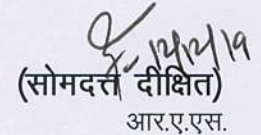 12/12/19
(सोमदत्त दीक्षित)
आर.ए.एस.